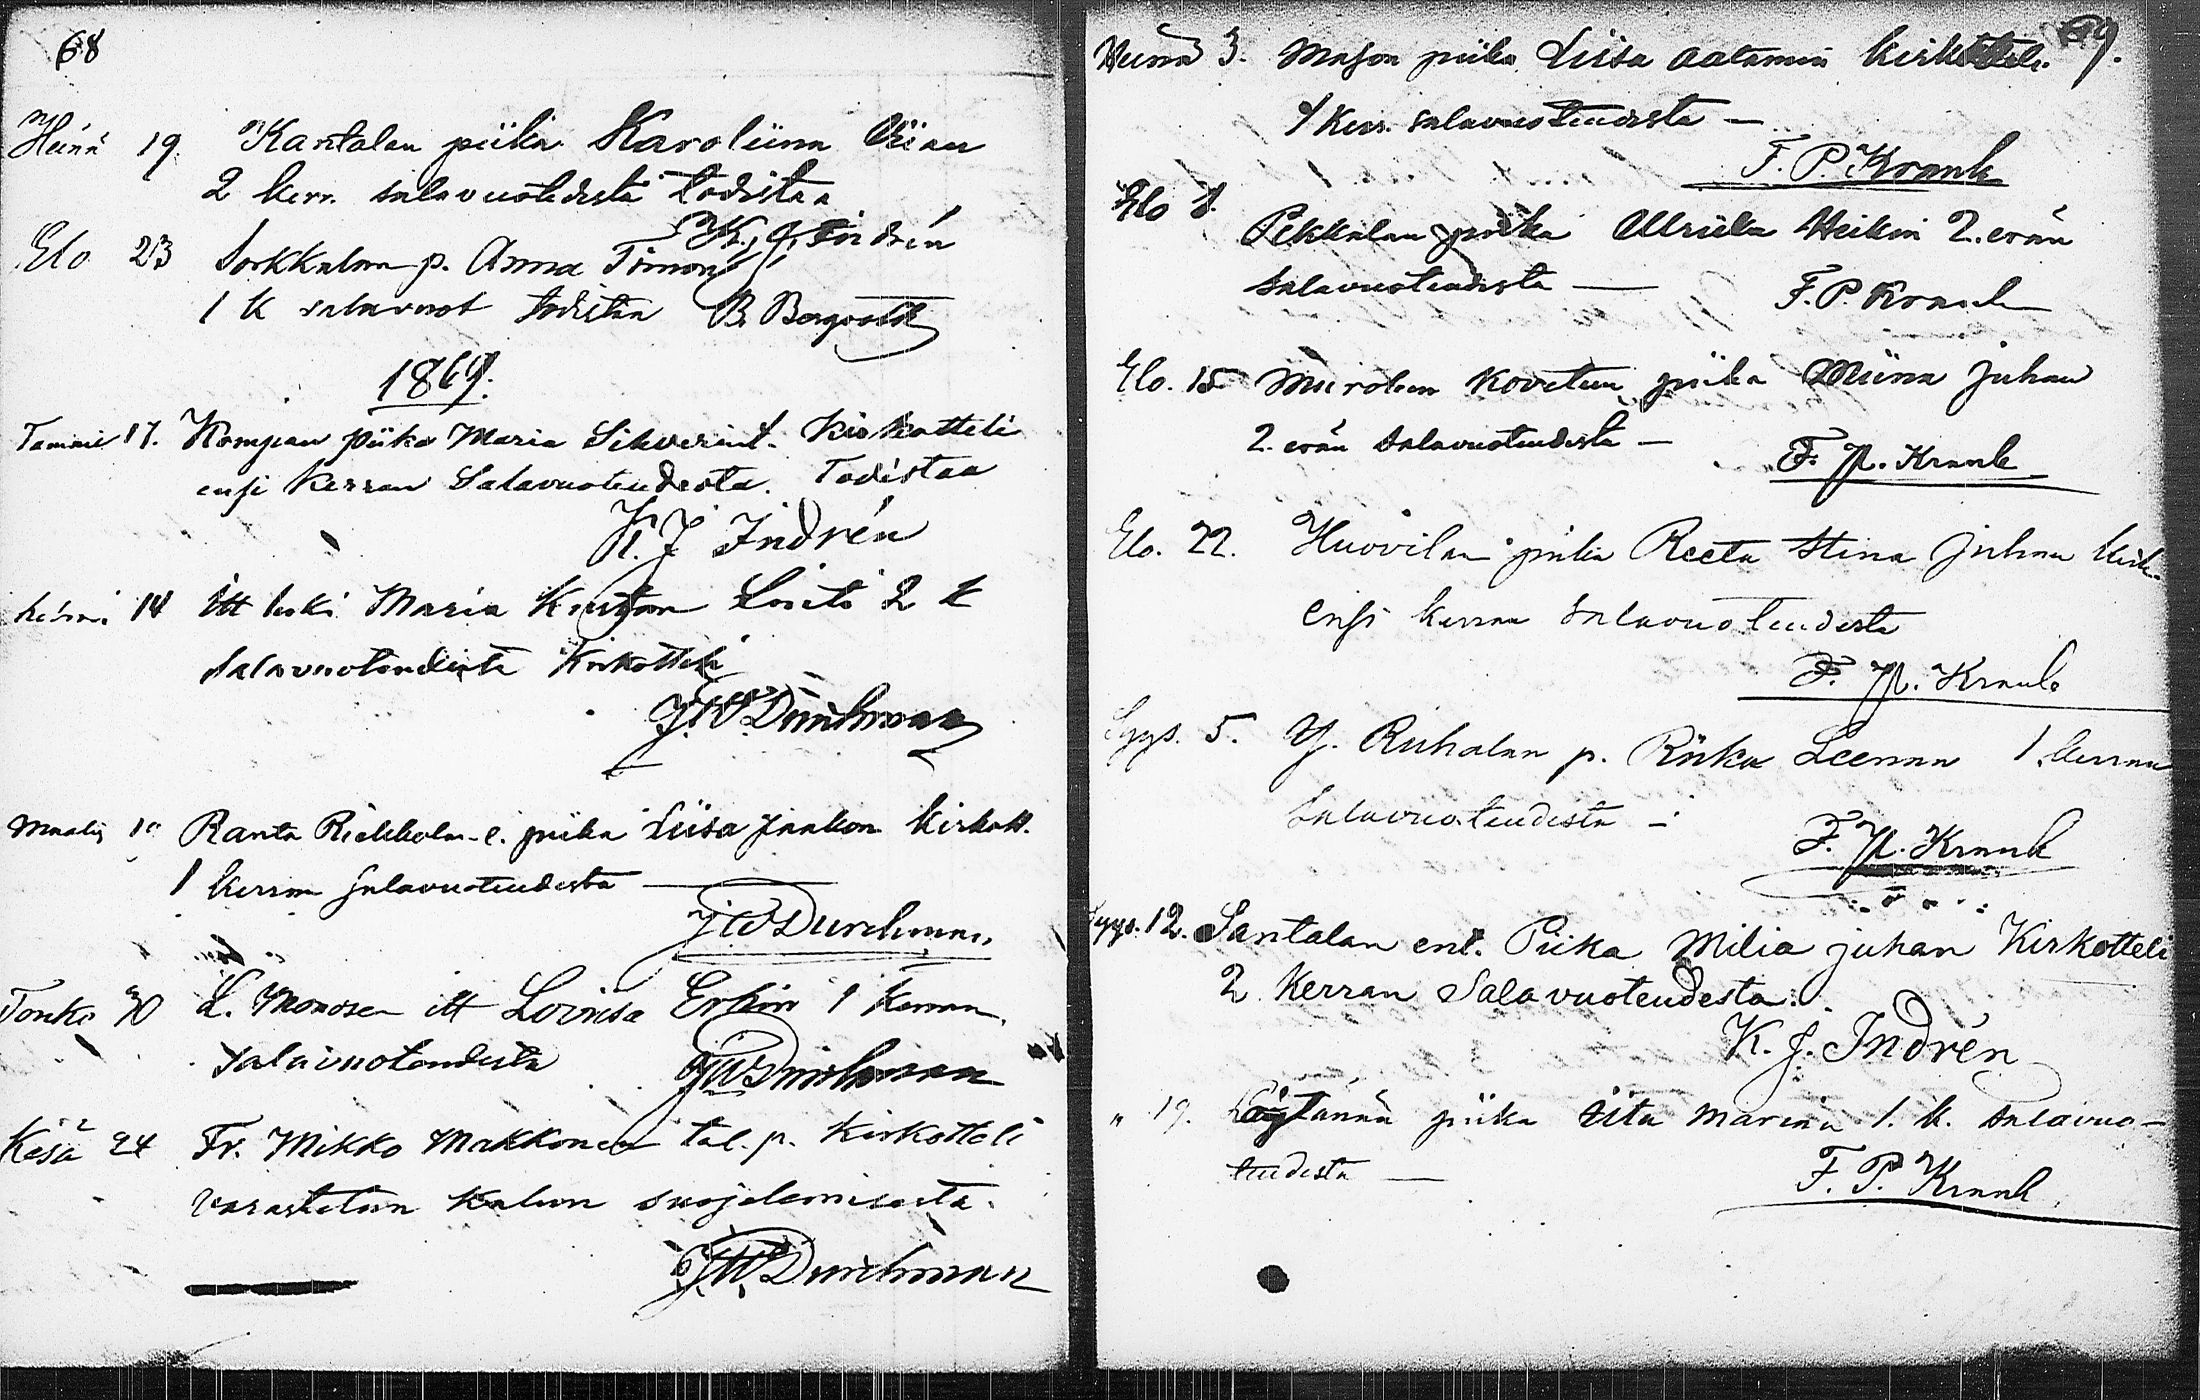 68
Heinä 19. Kantalan piika Karoliina
2 kerr. salavuotedesta todistaa
K. J. Indrén
Elo 23 p. Anna Timon
1 k salavuot todistaa B. Bergroth
1869.
Tammi 17. Kompan piika Maria Silverint. Kirkotteli
ensi kerran Salavuoteudesta. Todistaa
K. J Indrén
Helmi 14 itt leski Maria 2 k
Salavuoteudesta Kirkotteli
J. W. Durchman
Maalis Ranta Riekkola e. piika Liisa Jaakon Kirkott.
1 kerran salavuoteudesta —
J W Durchman
Touko 30 L. Monosen itt Lovisa Erkin 1 kerran
salavuoteudesta J W Durchman
Kesä 24 Fr. Mikko Makkonen tal. p. Kirkotteli
varastetun kalun suojelemisesta.
J. W. Durchman
69.
Heinä 3. piika Liisa Aatamin kirkotteli.
1 kerr. salavuoteudesta —
F. P. Krank
Elo 1. Pekkalan piika Ulriika Heikin 2. erän
salavuoteudesta — F. P. Krank
Elo. 15 Murolan piika Miina Juhan
2. erän salavuoteudesta —
F. P. Krank
Elo. 22. Huovilan piika Reeta Stina Juhan kirk.
ensi kerran salavuoteudesta
F. P. Krank
Syys. 5. Y. Riihalan p. Riika Leenan 1. kerran
salavuoteudesta —
F. P. Krank
Syys. 12. Santalan ent. Piika Milia juhan Kirkotteli
2 Kerran Salavuoteudesta.
K. J. Indrén
" 19. piika Iita Maria 1. k. salavuo-
teudesta —
F. P. Krank